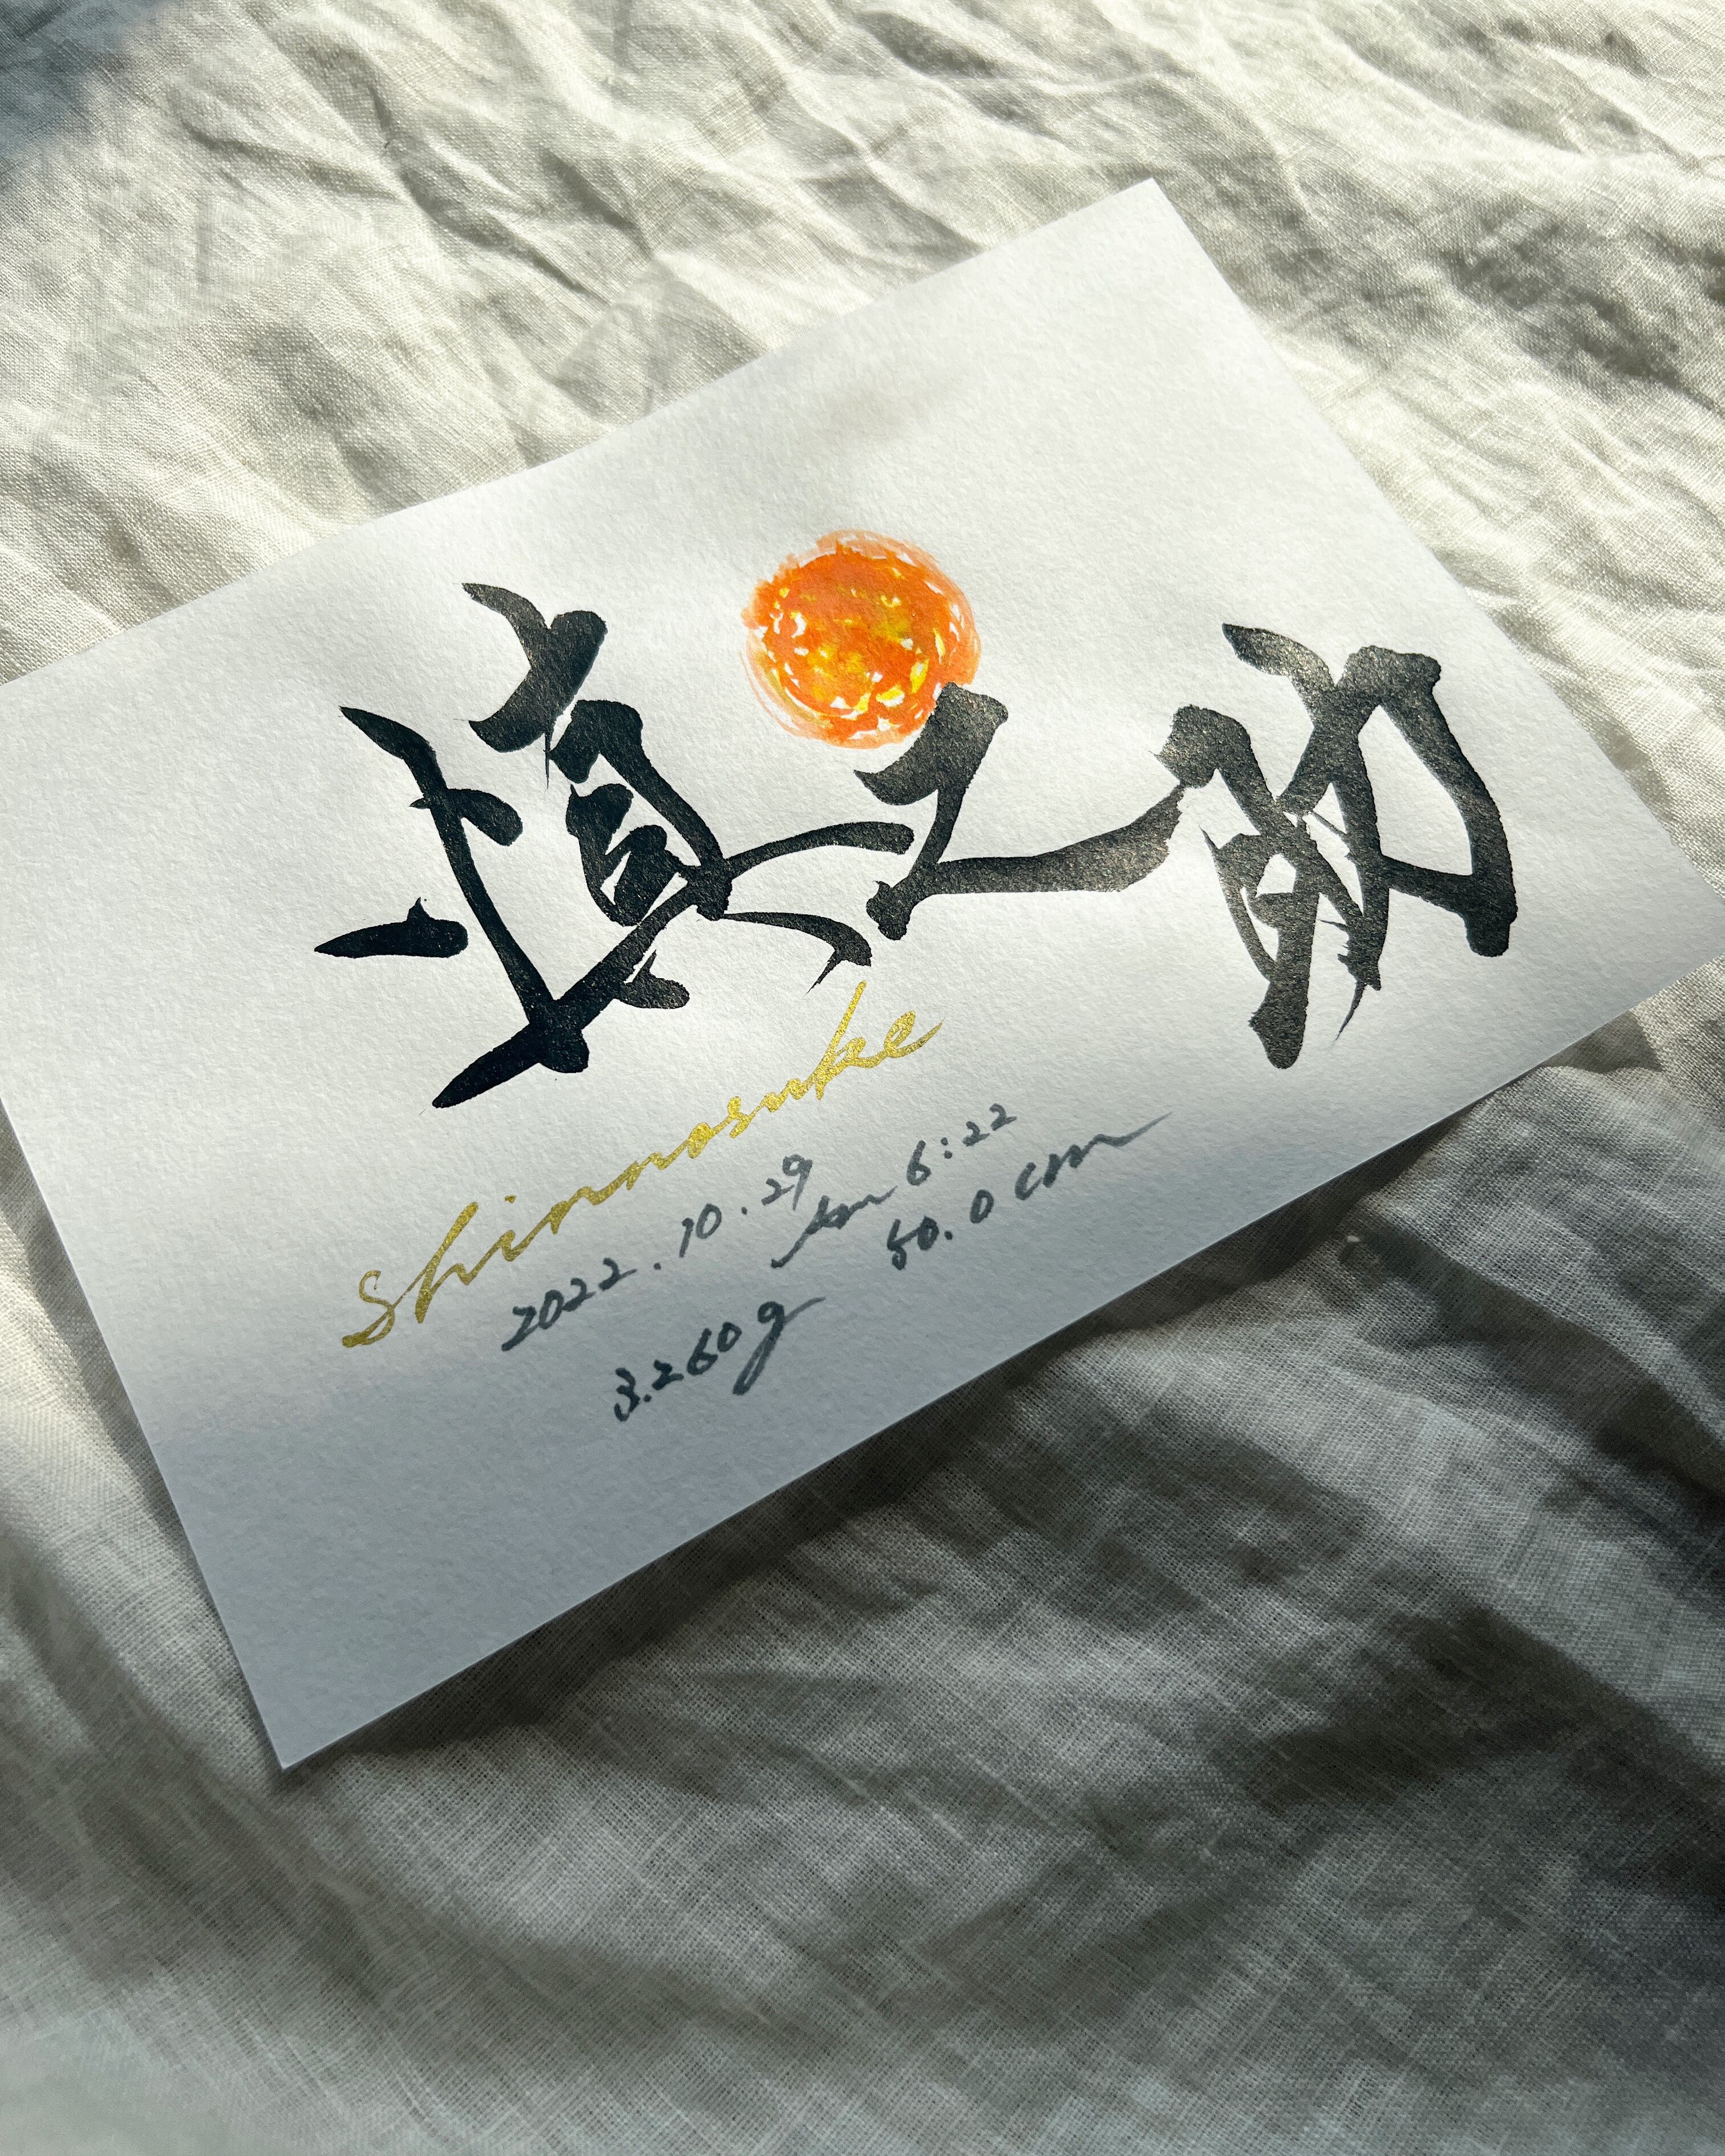 慎之助
shinnosuke
2022.10.29 Am 6:22
3.260g 50.0cm